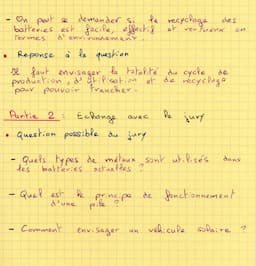 - On peut se demander si le recyclage des
batteries est facile, effectif et vertueux en
termes d'environnement.
• Réponse à la question
Il faut envisager la totalité du cycle de
production, d'utilisation et de recyclage
pour pouvoir trancher.
Partie 2 : Echange avec le jury
• Question possible du jury
- Quels types de métaux sont utilisés dans
les batteries actuelles ?
- Quel est le principe de fonctionnement
d'une pile ?
- Comment envisager un véhicule solaire ?